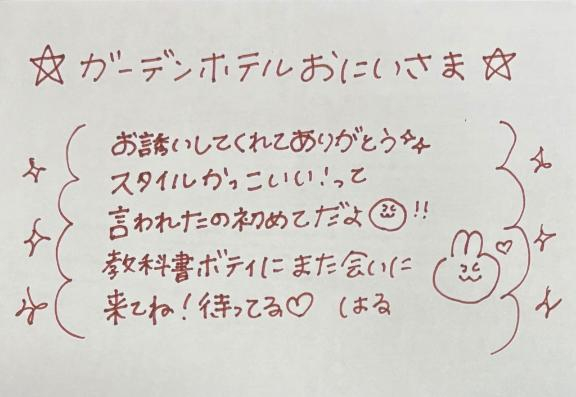 ☆ガーデンホテルおにいさま☆
お誘いしてくれてありがとう✨
スタイルかっこいい!って
言われたの初めてだよ!!
教科書ボディにまた会いに
来てね!待ってる♡ はる